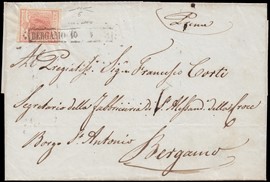 BERGAMO
Al Pregiatiss. Sig. Francesco Corti
Segretario della Fabbriceria di S. Alessand. della Croce
Borgo S. Antonio
Bergamo